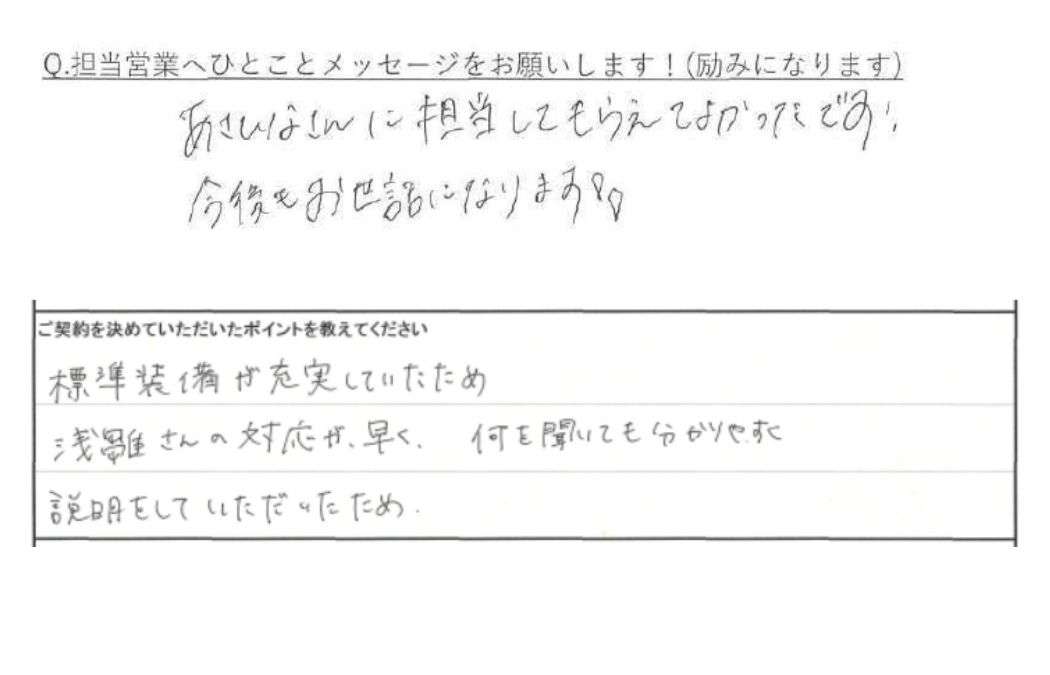 Q.担当営業へひとことメッセージをお願いします！(励みになります)
あさひなさんに担当してもらえてよかったです！
今後もお世話になります!!
ご契約を決めていただいたポイントを教えてください
標準装備が充実していたため
浅雛さんの対応が、早く、 何を聞いても分かりやすく
説明をしていただいたため.